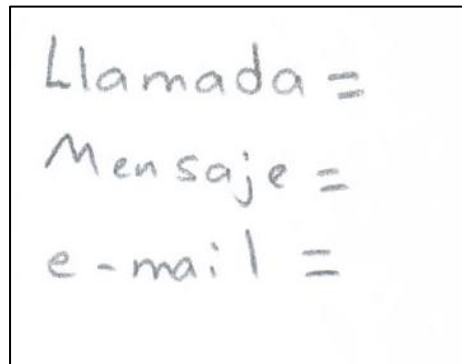 Llamada =
Mensaje =
e-mail =